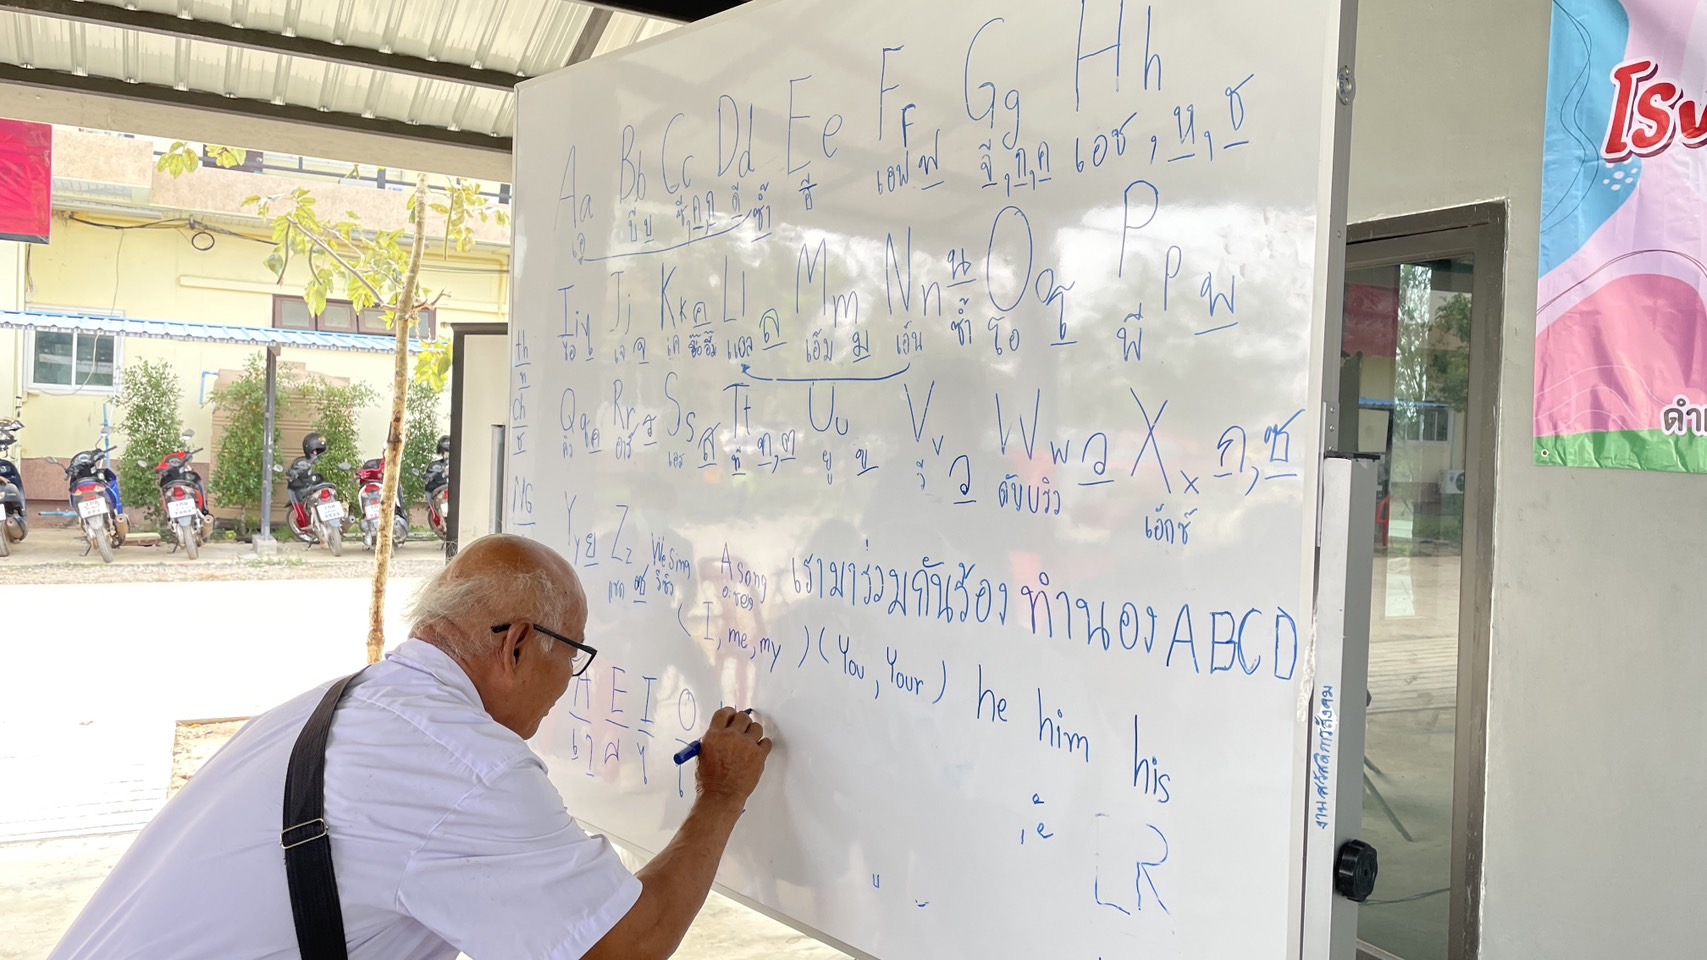 Aa Bb Cc Dd Ee Ff Gg Hh
เอ บี บ ซี,ค,ก ดี ซ้ำ อี เอฟ ฟ จี,ก,ค เอช , ห , ช
Ii Jj Kk ค Ll ล Mm Nn น Oo โ Pp พ
ไอ เจ จ เค แอล เอ็ม ม เอ็น ซ้ำ โอ พี
th
ท
ch
ช
Qq ค Rr ร Ss ส Tt Uu Vv ว Ww ว Xx ก,ซ
คิว อาร์ เอส ที ท,ต ยู วี ดับบริว เอ็กซ์
NG
Yy ย Zz We sing A song เรามาร่วมกันร้อง ทำนอง ABCD
แซด ซ วีซิง อะซอง
( I, me, my ) ( You, Your ) he him his
A E I O
เ า ไ โ
LR
งานสวัสดิการสังคม
โรง